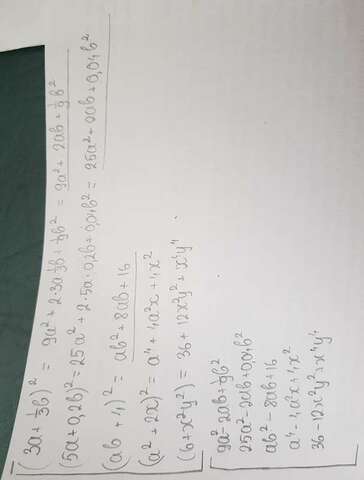 (3a + 1/3b)² = 9a² + 2·3a·1/3b + 1/9b² = 9a² + 2ab + 1/9b²
(5a + 0,2b)² = 25a² + 2·5a·0,2b + 0,04b² = 25a² + 2ab + 0,04b²
(ab + 4)² = ab² + 8ab + 16
(a² + 2x)² = a⁴ + 4a²x + 4x²
(6 + x²y²) = 36 + 12x²y² + x⁴y⁴
9a² - 2ab + 1/9b²
25a² - 2ab + 0,04b²
ab² - 8ab + 16
a⁴ - 4a²x + 4x²
36 - 12x²y² + x⁴y⁴